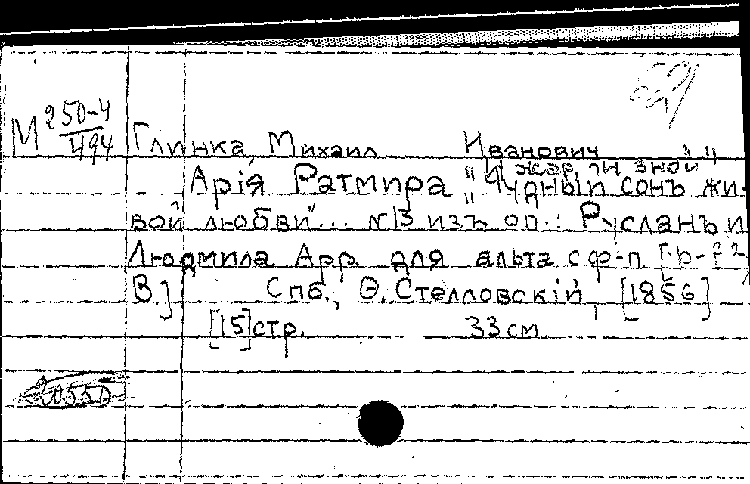 М 250-4/494
Глинка, Михаил Иванович
"И жар, и зной"
Арія Ратмира "Чудный сонъ жи-
вой любви"... №13 изъ оп.: Русланъ и
Людмила Арр. для альта с ф-п.
В.] Спб., Ѳ. Стелловскій, [1856]
[15] стр. 33 см
20550